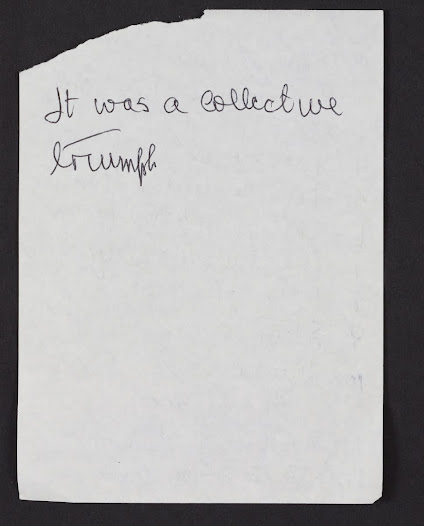 It was a collective
triumph